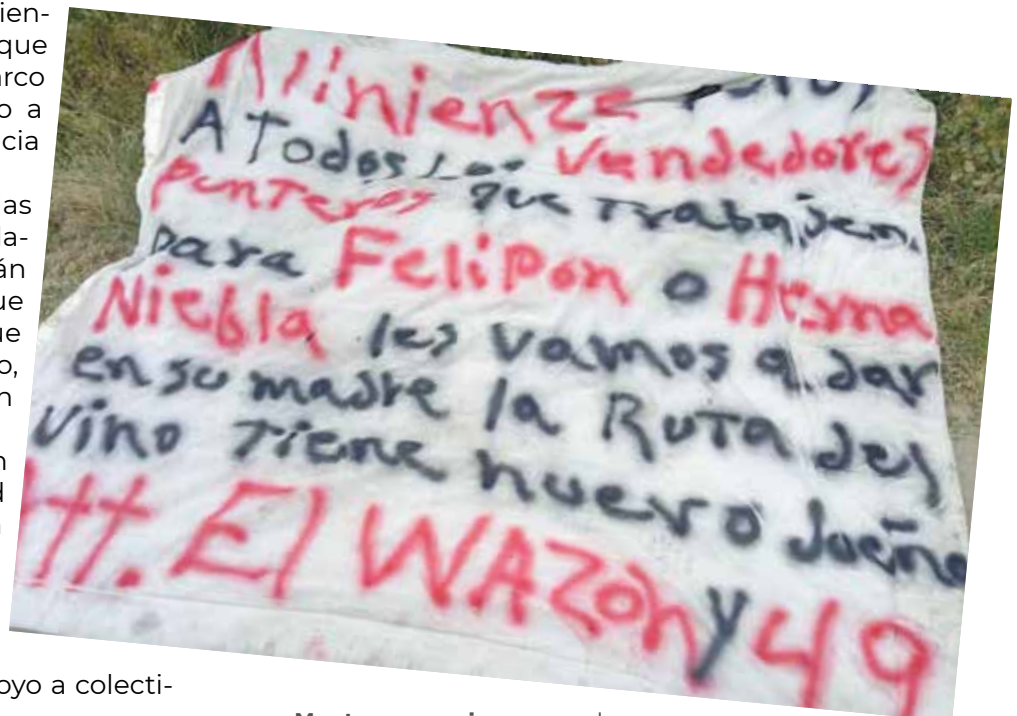 ien-
que
arco
o a
cia
as
la-
án
ue
ue
o,
n
n
oyo a colecti-
Alinienze
A Todos Los Vendedores
punteros que Trabajen
para Felipon o Hesma
Niebla les vamos a dar
en su madre la RuTa del
Vino Tiene nuevo dueño
Att. El WAZON y 49